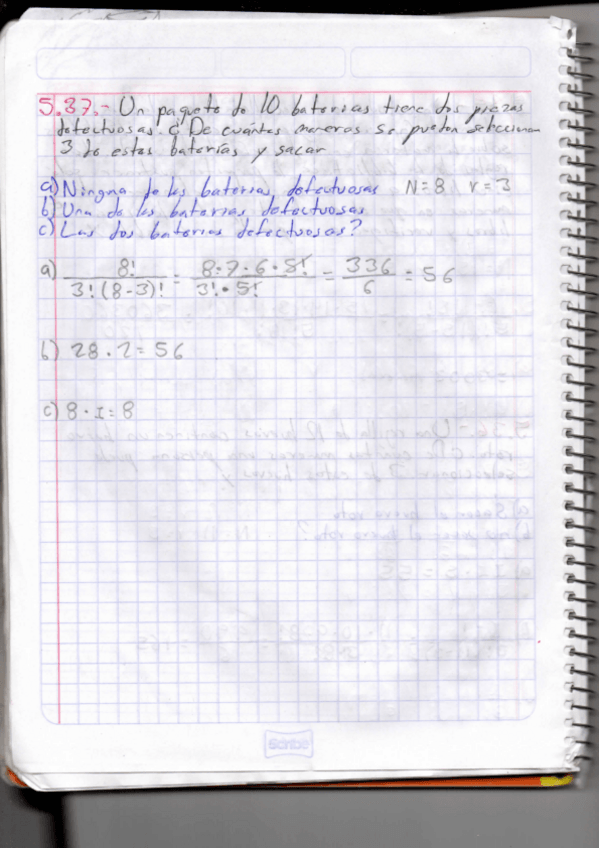 5.37.- Un paquete de 10 baterias tiene dos piezas
defectuosas. ¿De cuántas maneras se pueden seleccionar
3 de estas baterías y sacar
a) Ninguna de las baterias defectuosas N=8 r=3
b) Una de las baterias defectuosas
c) Las dos baterias defectuosas?
a) 8! / 3!(8-3)! = 8·7·6·5! / 3!·5! = 336 / 6 = 56
b) 28·2=56
c) 8·1=8
Scribe